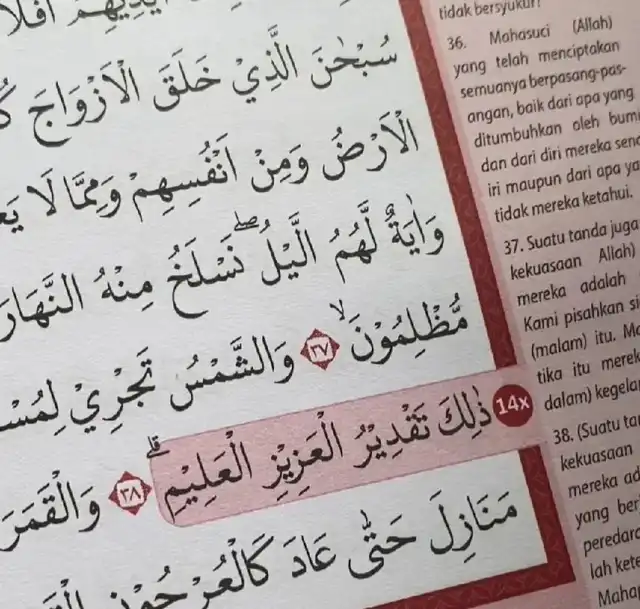 سُبْحٰنَ الَّذِيْ خَلَقَ الْاَزْوَاجَ
الْاَرْضُ وَمِنْ اَنْفُسِهِمْ وَمِمَّا لَا
وَاٰيَةٌ لَّهُمُ الَّيْلُ ۖنَسْلَخُ مِنْهُ النَّهَارَ
مُّظْلِمُوْنَۙ ٣٧ وَالشَّمْسُ تَجْرِيْ
14x ذٰلِكَ تَقْدِيْرُ الْعَزِيْزِ الْعَلِيْمِۗ ٣٨ وَالْقَمَرَ
مَنَازِلَ حَتّٰى عَادَ
tidak bersyukur?
36. Mahasuci (Allah)
yang telah menciptakan
semuanya berpasang-pas-
angan, baik dari apa yang
ditumbuhkan oleh
dan dari diri mereka
iri maupun dari apa
tidak mereka ketahui.
37. Suatu tanda juga
kekuasaan Allah)
mereka adalah
Kami pisahkan
(malam) itu.
tika itu
dalam)
38. (Suatu
kekuasaan
mereka
yang